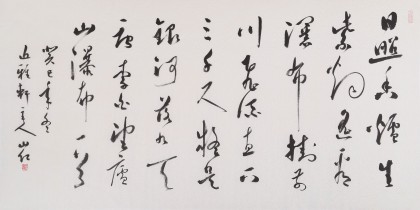 日照香爐生
紫烟遥看
瀑布掛前
川飛流直下
三千尺疑是
銀河落九天
唐李白望廬
山瀑布一首
癸巳年冬
雅軒主人山